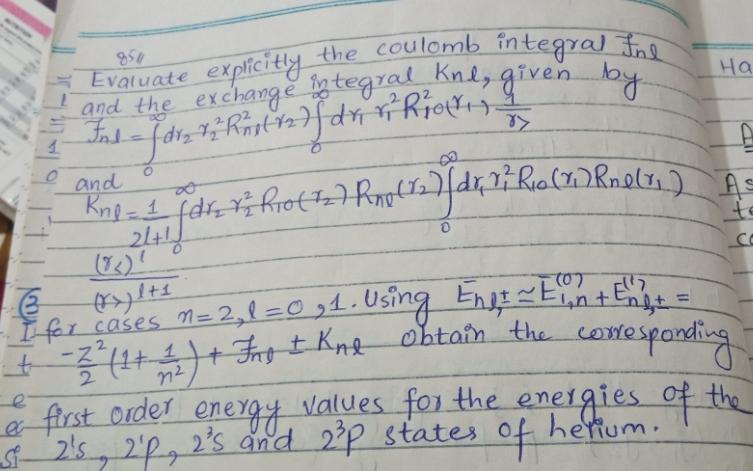 8511
Evaluate explicitly the coulomb integral Jnl
and the exchange integral Knl, given by
Jnl = ∫₀^∞ dr₂ r₂² R²nl(r₂) ∫₀^∞ dr₁ r₁² R²₁₀(r₁) 1/r>
and
Knl = 1/2l+1 ∫₀^∞ dr₂ r₂² R₁₀(r₂) Rnl(r₂) ∫₀^∞ dr₁ r₁² R₁₀(r₁) Rnl(r₁)
(r<)^l / (r>)^l+1
for cases n=2, l=0,1. Using Enl,± ≃ E^(0)1,n + E^(1)nl,± =
-Z²/2 (1+ 1/n²) + Jnl ± Knl obtain the corresponding
first order energy values for the energies of the
2¹s, 2¹p, 2³s and 2³p states of helium.
Ha
As